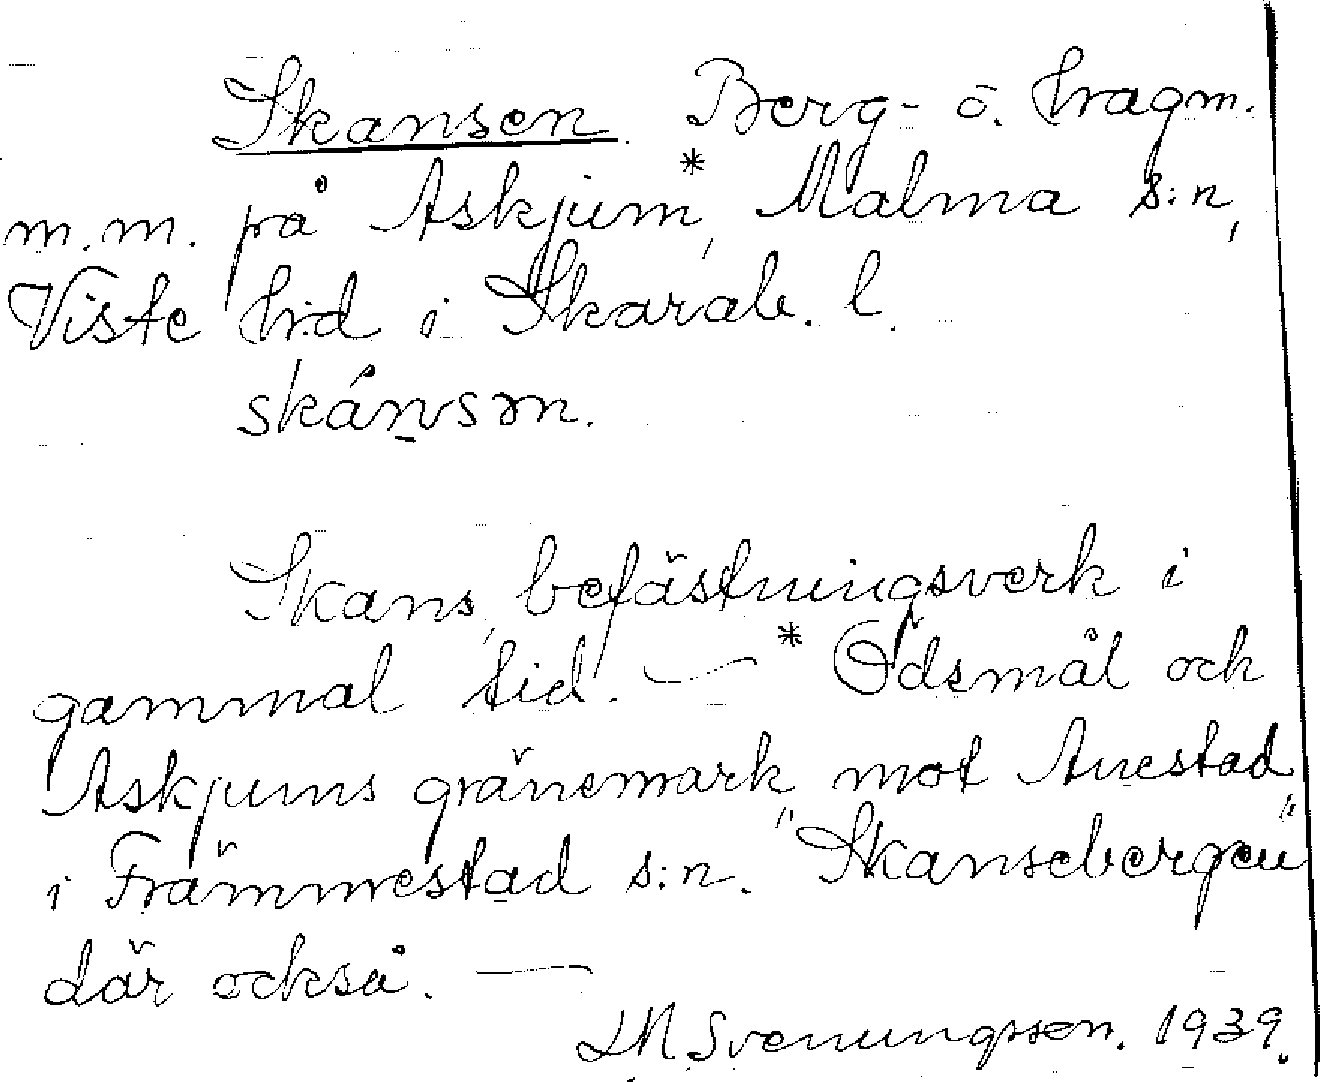 Skansen. Berg- o. hagm.
m.m. på Askjum*, Malma s:n,
Viste hd i Skarab. l.
skánsən.
Skans, befästningsverk i
gammal tid. — *Ödsmål och
Askjums gränsmark mot Anestad
i Främmestad s:n. "Skansebergen"
där också. —
LM. Svenungsson. 1939.